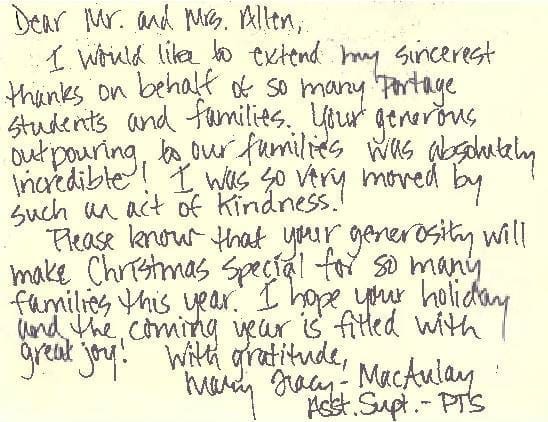 Dear Mr. and Mrs. Allen,
I would like to extend my sincerest
thanks on behalf of so many Portage
students and families. Your generous
outpouring to our families was absolutely
incredible! I was so very moved by
such an act of kindness.
Please know that your generosity will
make Christmas special for so many
families this year. I hope your holiday
and the coming year is filled with
great joy! With gratitude,
Mary Tracy-MacAulay
Asst. Supt. - PTS